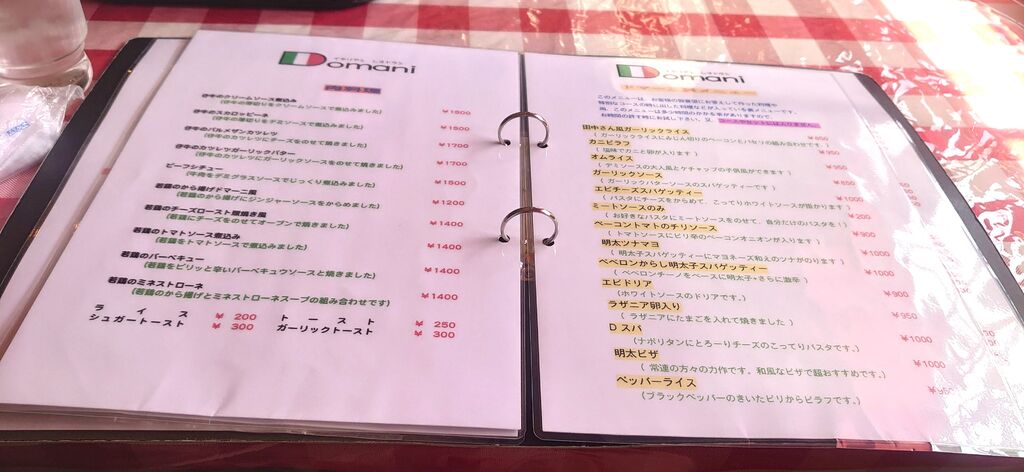 イタリアン レストラン
Domani
仔牛のクリームソース煮込み
(仔牛の薄切りをクリームソースで煮込みました)
¥1800
仔牛のスカロッピーネ
(仔牛の薄切りをデミソースで煮込みました)
¥1500
仔牛のパルメザンカツレツ
(仔牛のカツレツにチーズソースをのせて焼きました)
¥1700
仔牛のカツレツガーリックバター
(仔牛のカツレツにガーリックソースをのせて焼きました)
¥1700
ビーフシチュー
(牛肉をデミグラスソースでじっくり煮込みました)
¥1500
若鶏のから揚げドマーニ風
(若鶏のから揚げにジンジャーソースをからめました)
¥1200
若鶏のチーズロースト窯焼き風
(若鶏にチーズをのせてオーブンで焼きました)
¥1400
若鶏のトマトソース煮込み
(若鶏をトマトソースで煮込みました)
¥1400
若鶏のバーベキュー
(若鶏をピリッと辛いバーベキュウソースと焼きました)
¥1400
若鶏のミネストローネ
(若鶏のから揚げとミネストローネスープの組み合わせです)
¥1400
ライス ¥ 200 トースト ¥ 250
シュガートースト ¥ 300 ガーリックトースト ¥ 300
イタリアン レストラン
Domani
このメニューは、お客様の御要望にお答えして作った料理や
特別なコースの時に出した料理などが入っている裏メニューです。
尚、このメニューは多少時間のかかる事がありますので、
お時間の許す時にお試し下さい。又、コースやセットにはなりません。
田中さん風ガーリックライス
(ガーリックライスにみじん切りのベーコンとパセリの組み合わせです。)
¥850
カニピラフ
(塩味でカニと卵が入ります)
¥950
オムライス
(デミソースの大人風とケチャップの子供風ができます)
¥950
ガーリックソース
(ガーリックバターソースのスパゲッティーです)
エビチーズスパゲッティー
(パスタにチーズをからめて、こってりホワイトソースが掛かります)
¥1000
ミートソースのみ
(お好きなパスタにミートソースをのせて、自分だけのパスタを!)
¥200
ベーコントマトのチリソース
(トマトソースにピリ辛のベーコンオニオンが入ります)
¥900
明太ツナマヨ
(明太子スパゲッティーにマヨネーズ和えのツナがのります)
¥1000
ペペロンからし明太子スパゲッティー
(ペペロンチーノをベースに明太子+さらに激辛)
¥1000
エビドリア
(ホワイトソースのドリアです。)
¥900
ラザニア卵入り
(ラザニアにたまごを入れて焼きました)
¥950
Dスパ
(ナポリタンにとろーりチーズのこってりパスタです。)
¥1000
明太ピザ
(常連の方々の力作です。和風なピザで超おすすめです。)
¥1000
ペッパーライス
(ブラックペッパーのきいたピリからピラフです。)